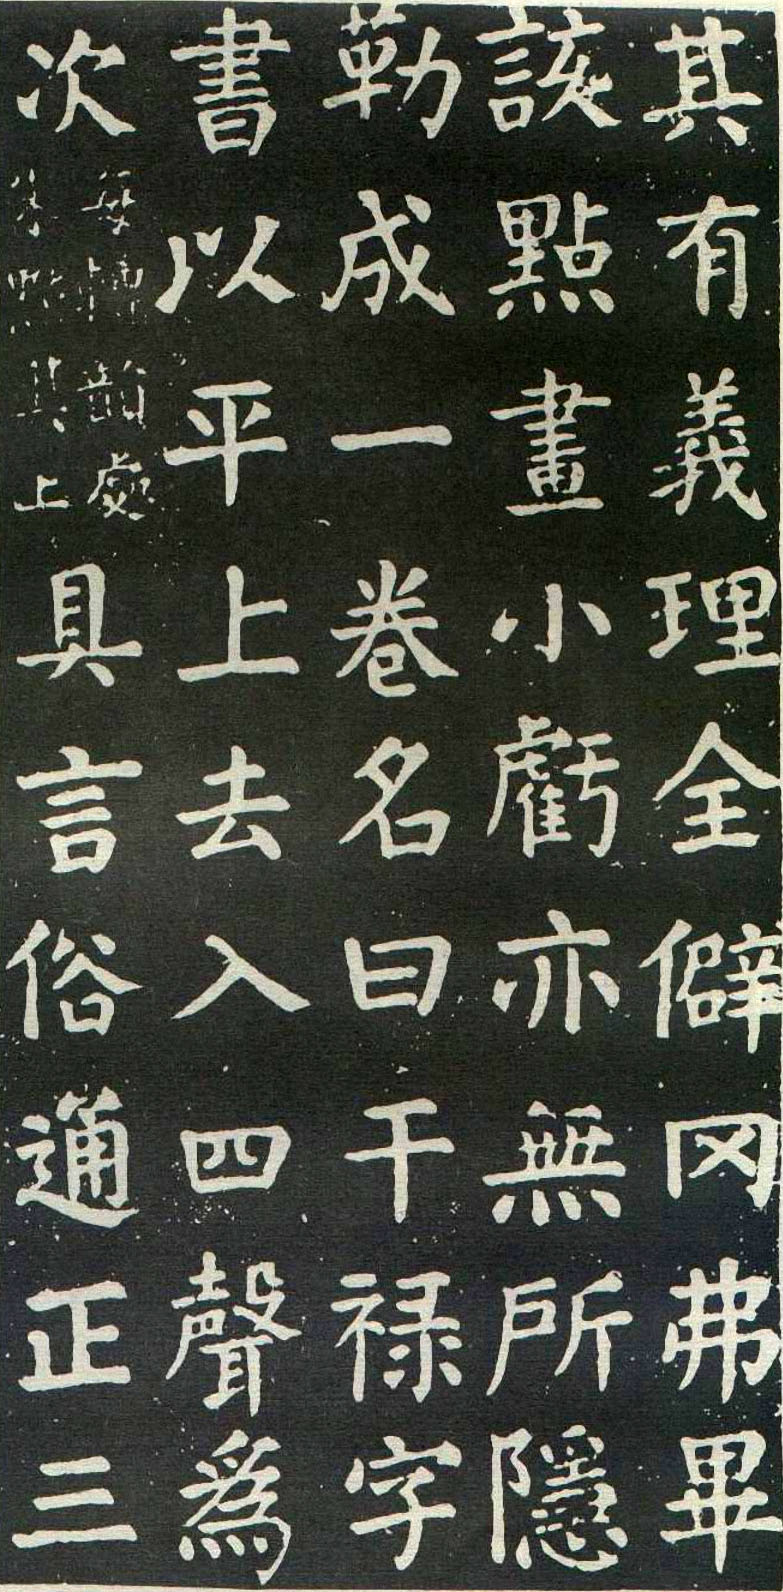 其有義理全僻冈弗畢
該點畫小虧亦無所隱
勒成一卷名曰干禄字
書以平上去入四聲爲
次每轉韻處朱點其上具言俗通正三